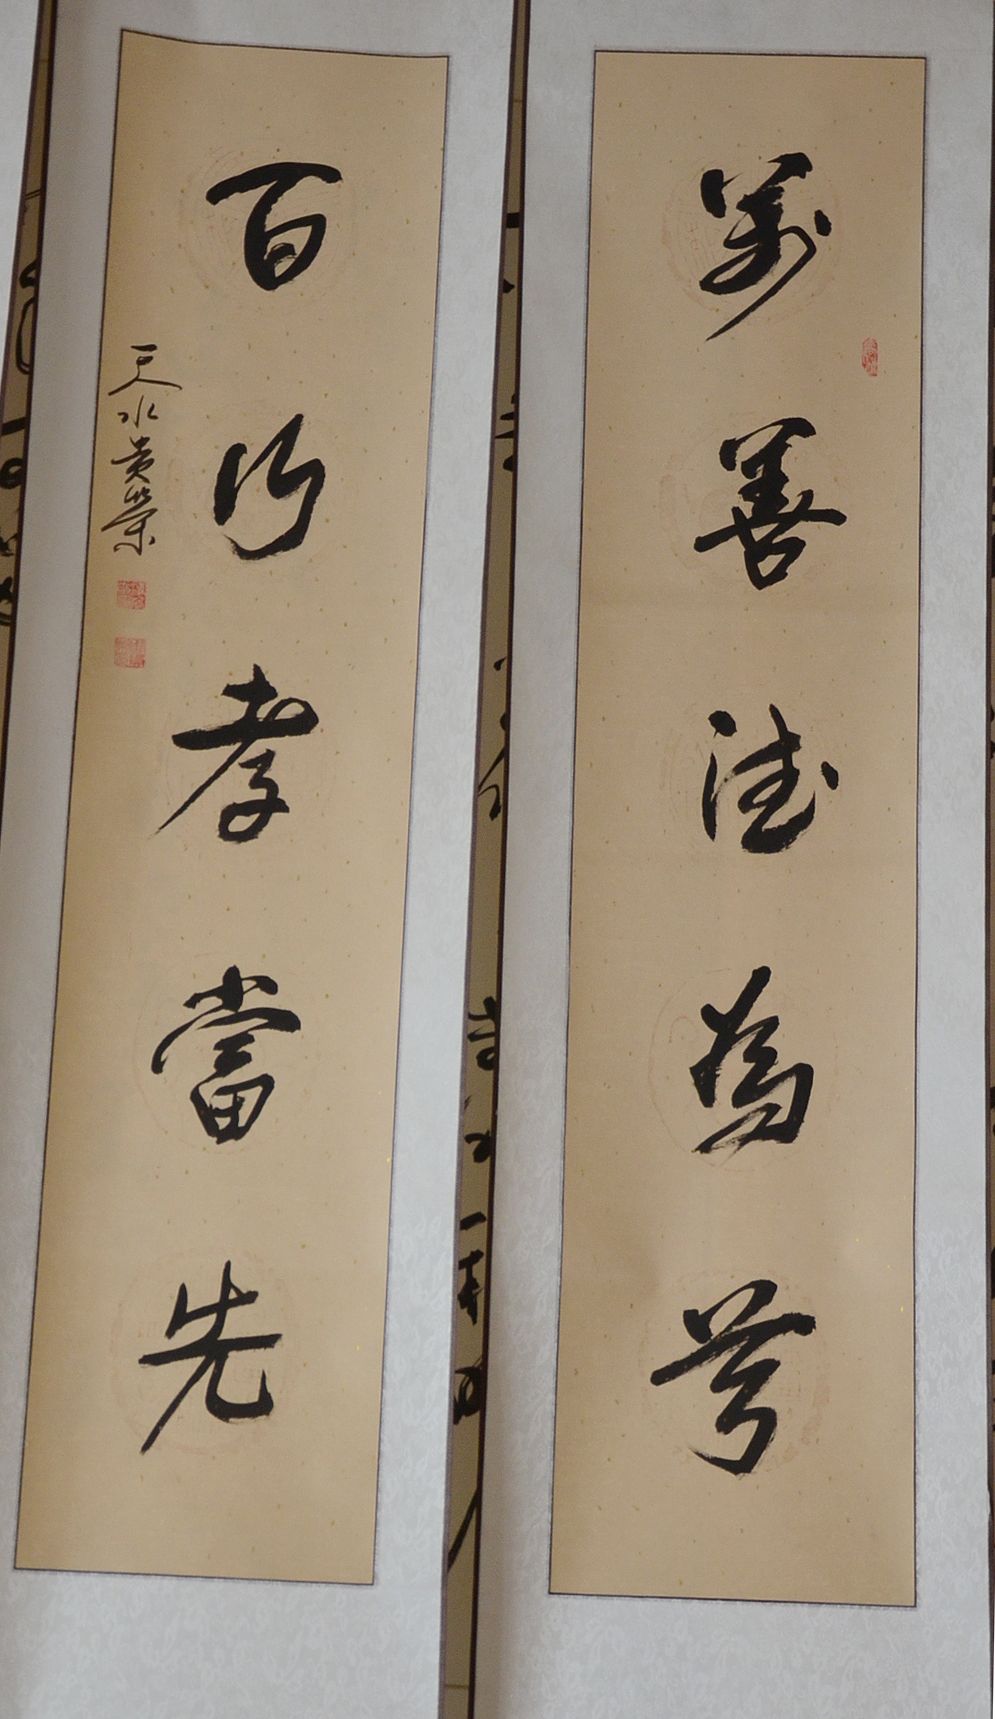 萬善德為首
百行孝當先
天水貴榮